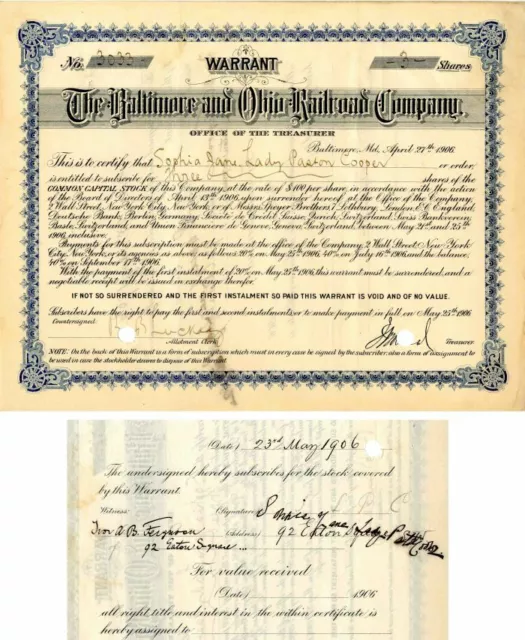 No. 3000 WARRANT - 3 - Shares
The Baltimore and Ohio Railroad Company.
OFFICE OF THE TREASURER
Baltimore, Md., April 27th 1906
This is to certify that Sophia Jane Lady Paston Cooper or order,
is entitled to subscribe for three shares of the
COMMON CAPITAL STOCK of this Company, at the rate of $100 per share, in accordance with the action
of the Board of Directors of April 13th 1906, upon surrender hereof at the Office of the Company,
2 Wall Street, New York City, New York, or of Messrs. Speyer Brothers, 7 Lothbury, London, E.C. England
Deutsche Bank, Berlin, Germany, Societe de Credit Suisse, Zurich, Switzerland, Swiss Bankverein,
Basle, Switzerland, and Union Financiere de Geneve, Geneva, Switzerland, between May 21st and 25th
1906, inclusive.
Payments for this subscription must be made at the office of the Company, 2 Wall Street, New York
City, New York, or its agencies as above as follows: 20% on May 25th 1906, 40% on July 16th 1906 and the balance,
40% on September 17th 1906.
With the payment of the first instalment of 20% on May 25th 1906, this warrant must be surrendered, and a
negotiable receipt will be issued in exchange therefor.
IF NOT SO SURRENDERED AND THE FIRST INSTALMENT SO PAID THIS WARRANT IS VOID AND OF NO VALUE.
Subscribers have the right to pay the first and second instalments or to make payment in full on May 25th 1906
Countersigned:
Allotment Clerk Treasurer
NOTE: On the back of this Warrant is a form of subscription which must in every case be signed by the subscriber; also a form of assignment to
be used in case the stockholder desires to dispose of this Warrant.
(Date) 23rd May 1906
The undersigned hereby subscribes for the stock covered
by this Warrant
Witness: (Signature)
A. B. Ferguson (Address) 92 Eaton
92 Eaton Square
For value received
(Date) 1906
all right, title and interest in the within certificate is
hereby assigned to